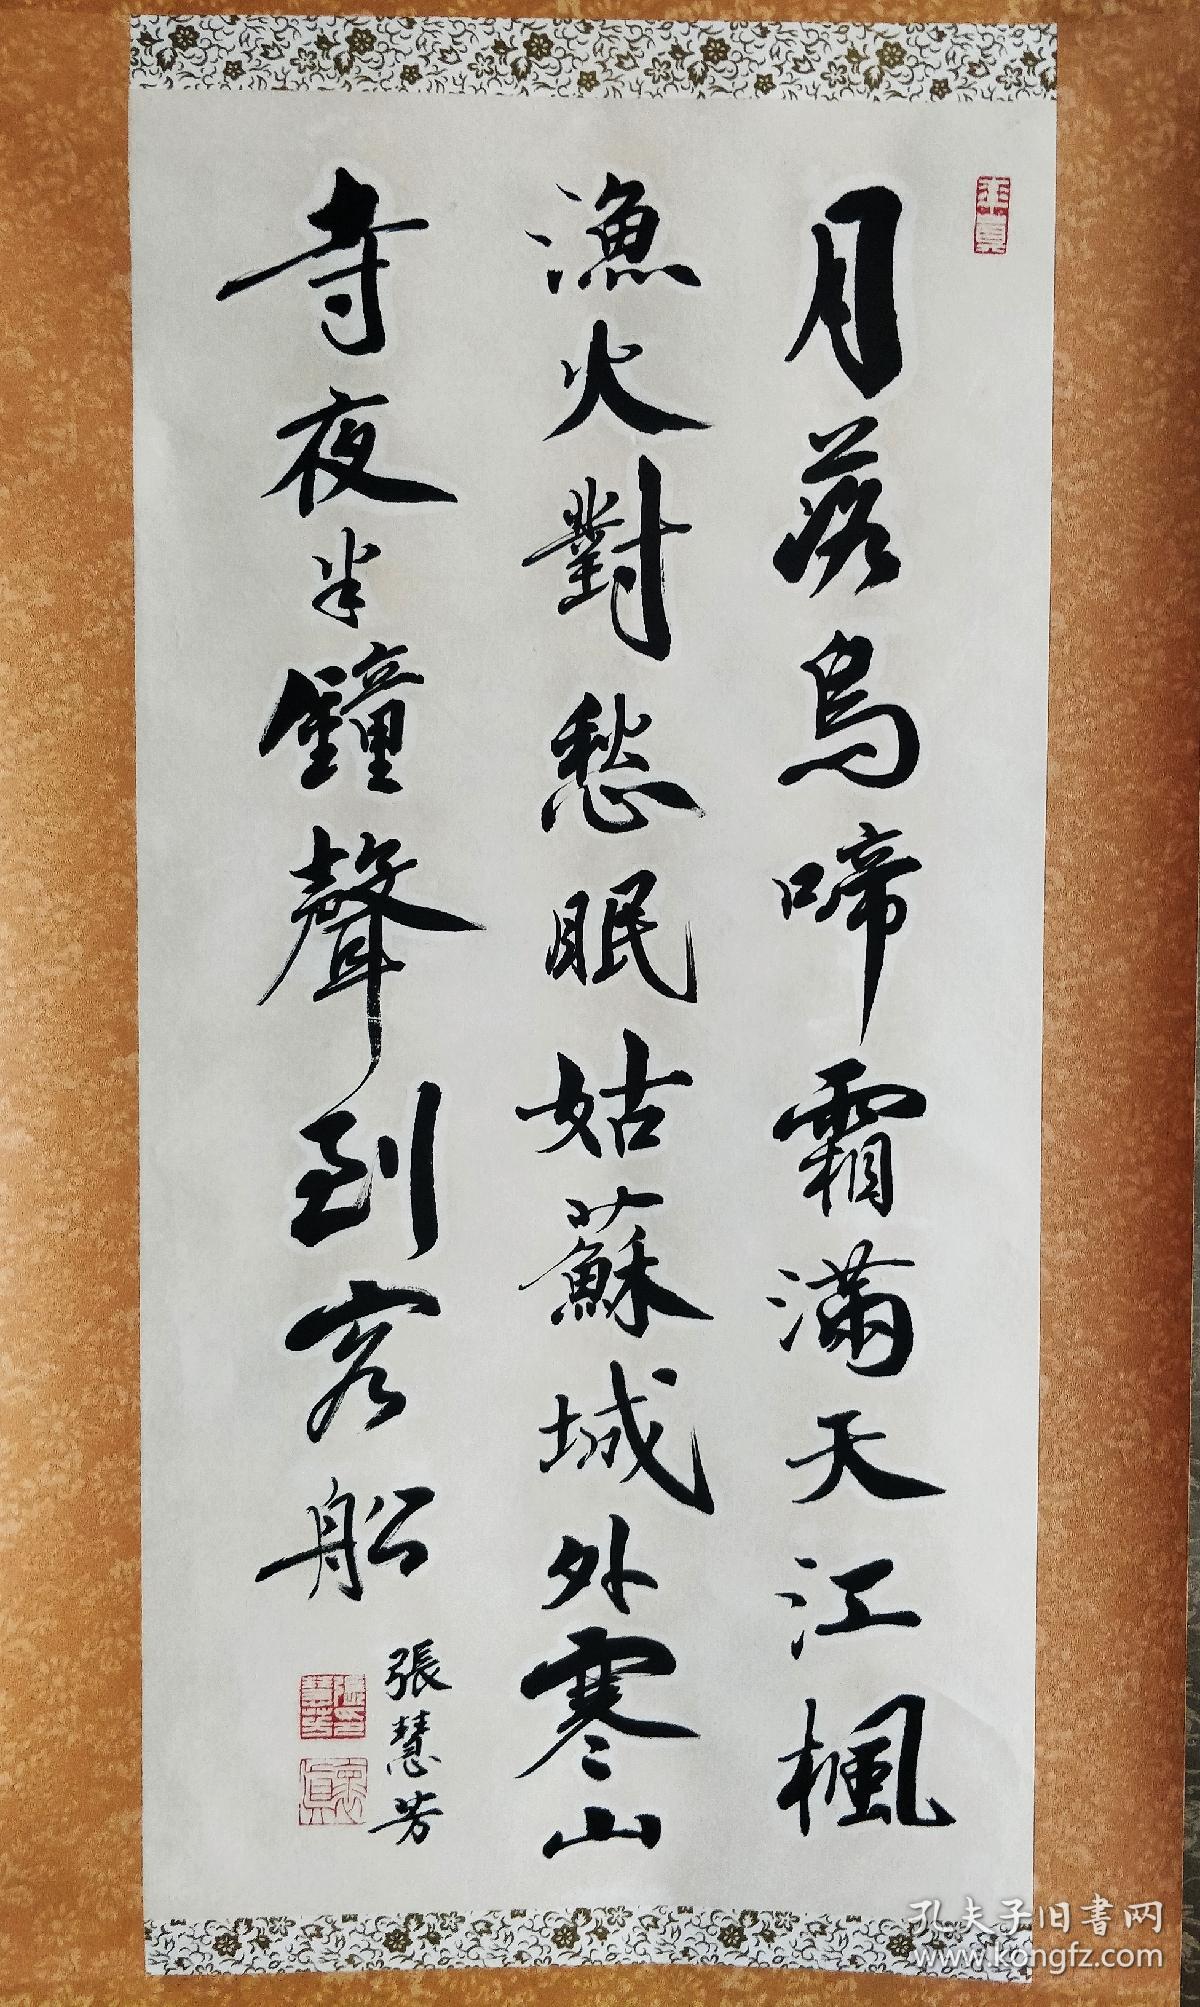 月落烏啼霜滿天江楓
漁火對愁眠姑蘇城外寒山
寺夜半鐘聲到客船
張慧芳
孔夫子旧書网
www.kongfz.com